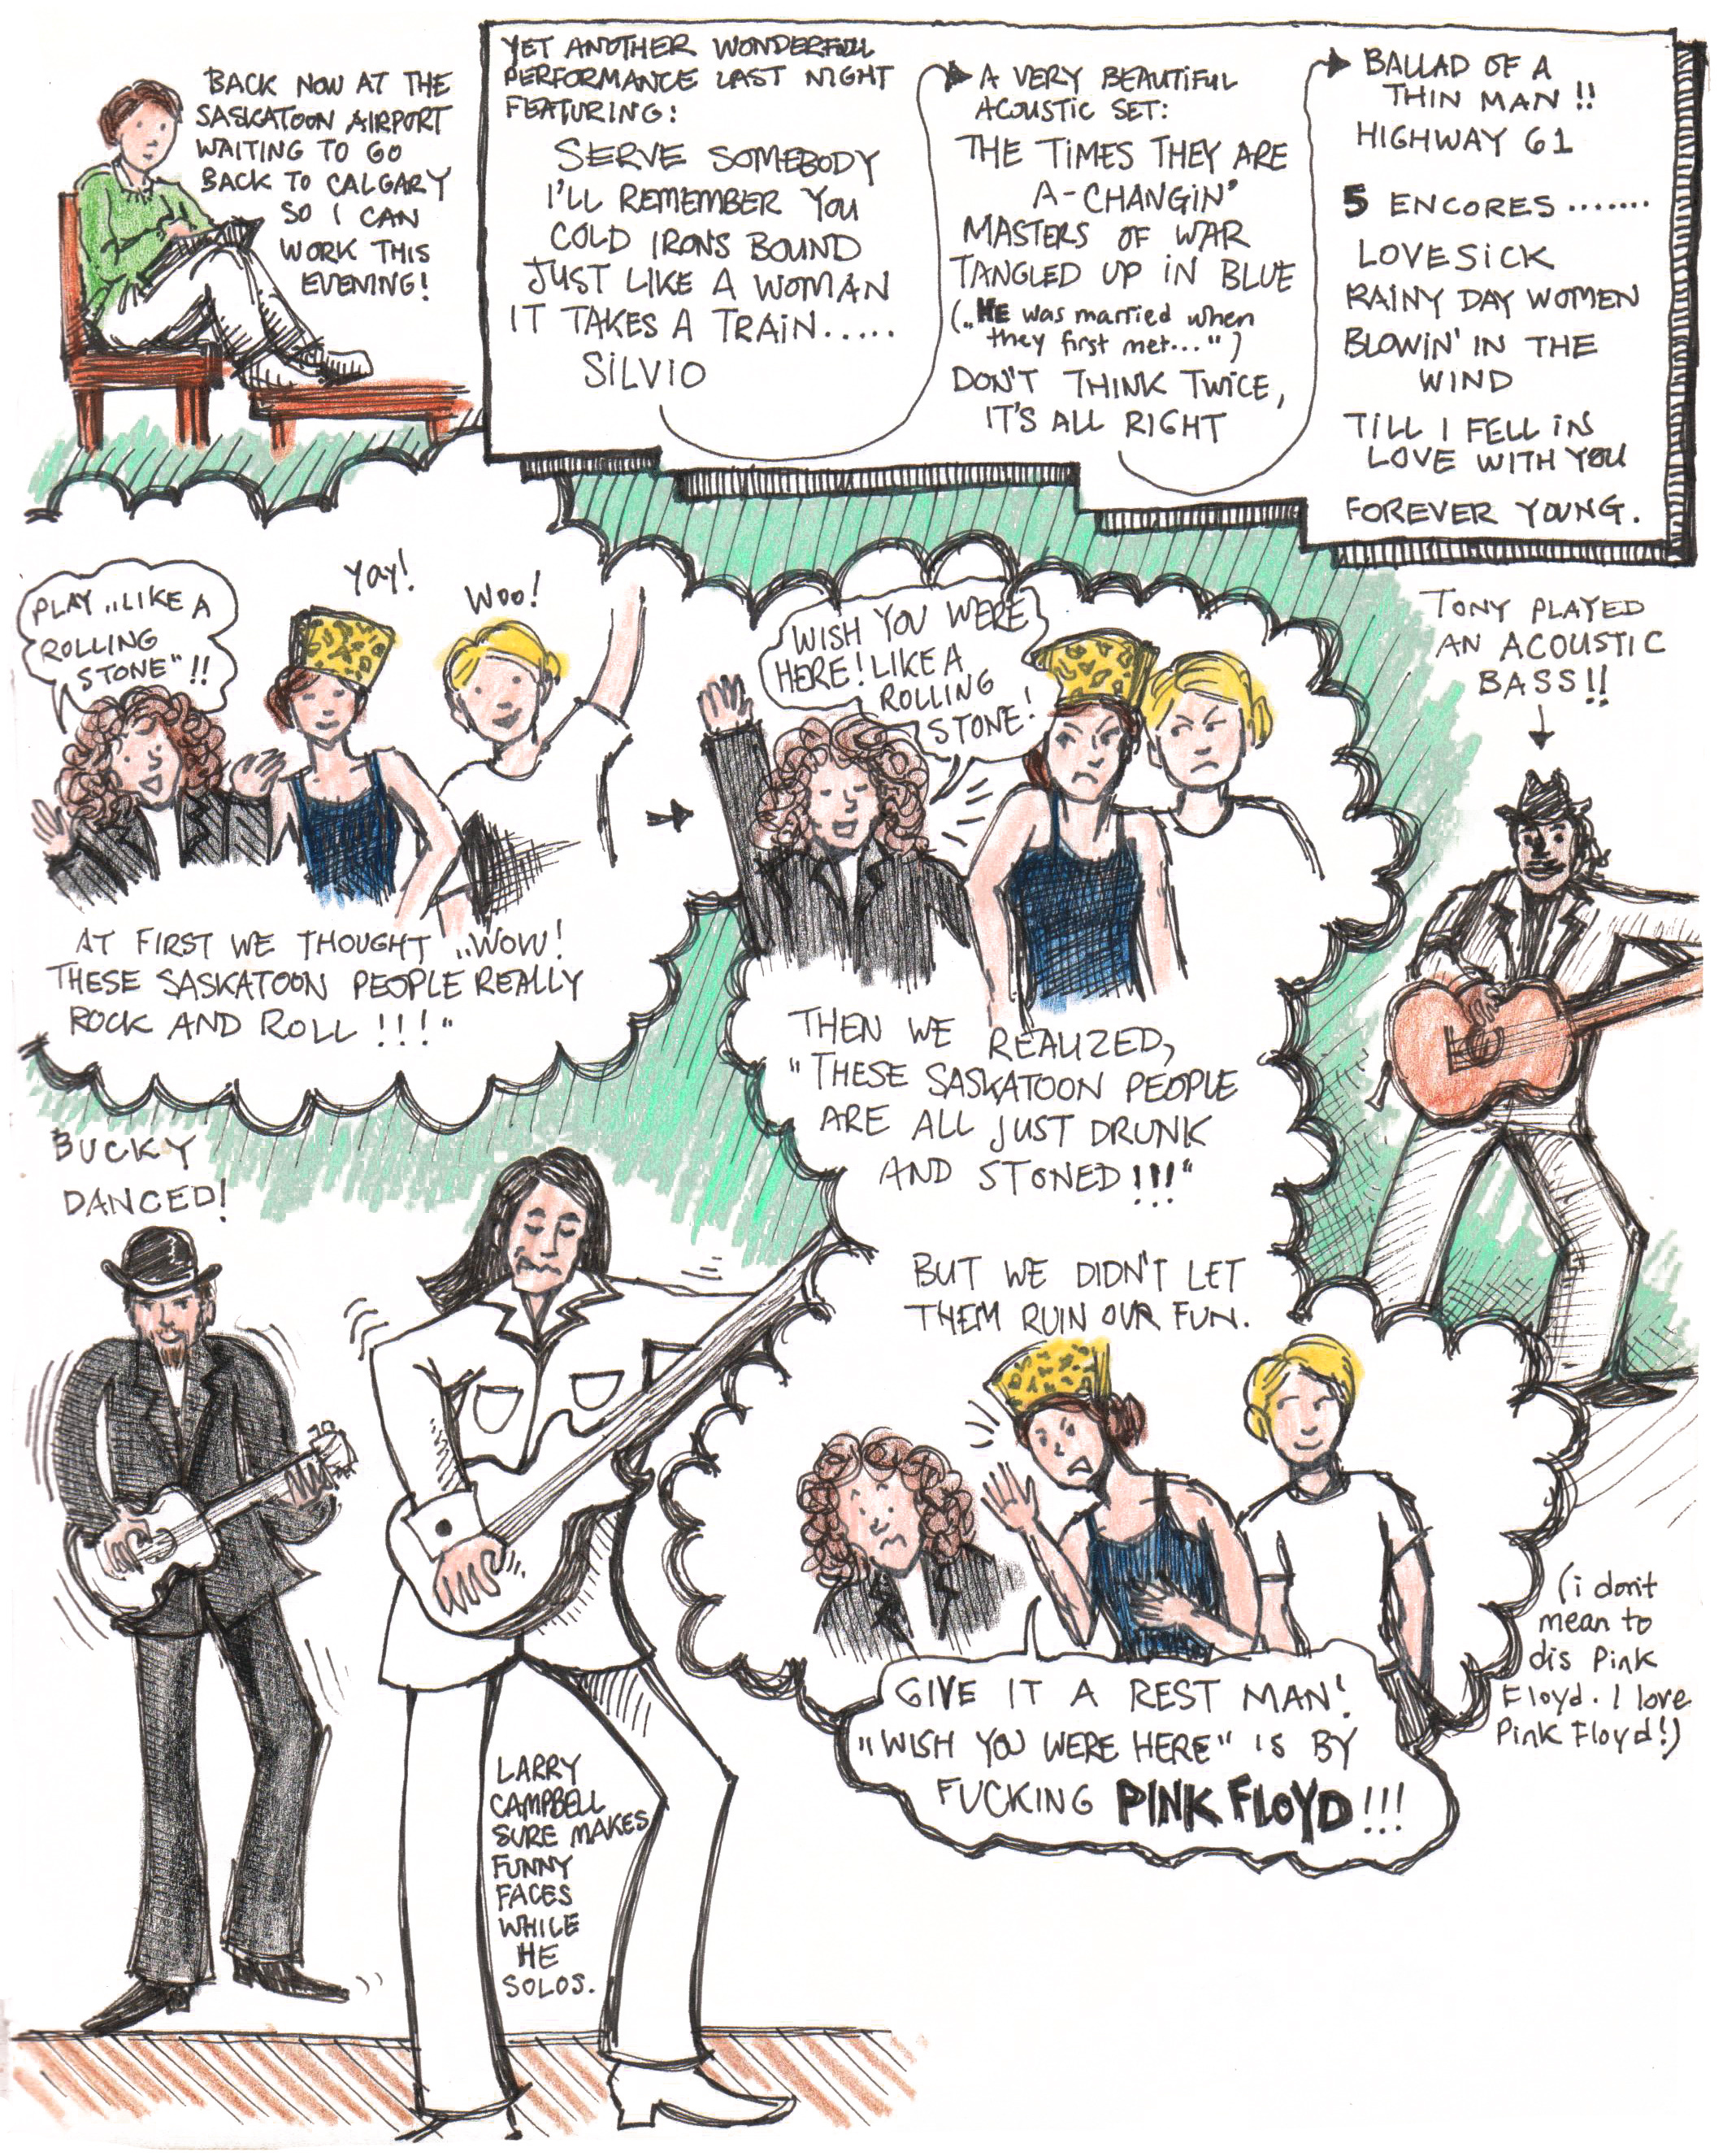 BACK NOW AT THE
SASKATOON AIRPORT
WAITING TO GO
BACK TO CALGARY
SO I CAN
WORK THIS
EVENING!
YET ANOTHER WONDERFULL
PERFORMANCE LAST NIGHT
FEATURING:
SERVE SOMEBODY
I'LL REMEMBER YOU
COLD IRONS BOUND
JUST LIKE A WOMAN
IT TAKES A TRAIN.....
SILVIO
A VERY BEAUTIFUL
ACOUSTIC SET:
THE TIMES THEY ARE
A-CHANGIN'
MASTERS OF WAR
TANGLED UP IN BLUE
(„HE was married when
they first met..." )
DON'T THINK TWICE,
IT'S ALL RIGHT
BALLAD OF A
THIN MAN !!
HIGHWAY 61
5 ENCORES .......
LOVESICK
RAINY DAY WOMEN
BLOWIN' IN THE
WIND
TILL I FELL IN
LOVE WITH YOU
FOREVER YOUNG.
PLAY „LIKE A
ROLLING
STONE" !!
Yay!
Woo!
AT FIRST WE THOUGHT „WOW!
THESE SASKATOON PEOPLE REALLY
ROCK AND ROLL !!!"
WISH YOU WERE
HERE! LIKE A
ROLLING
STONE!
THEN WE REALIZED,
"THESE SASKATOON PEOPLE
ARE ALL JUST DRUNK
AND STONED !!!"
TONY PLAYED
AN ACOUSTIC
BASS!!
BUCKY
DANCED!
BUT WE DIDN'T LET
THEM RUIN OUR FUN.
GIVE IT A REST MAN!
„WISH YOU WERE HERE" IS BY
FUCKING PINK FLOYD!!!
(i don't
mean to
dis Pink
Floyd. I love
Pink Floyd!)
LARRY
CAMPBELL
SURE MAKES
FUNNY
FACES
WHILE
HE
SOLOS.